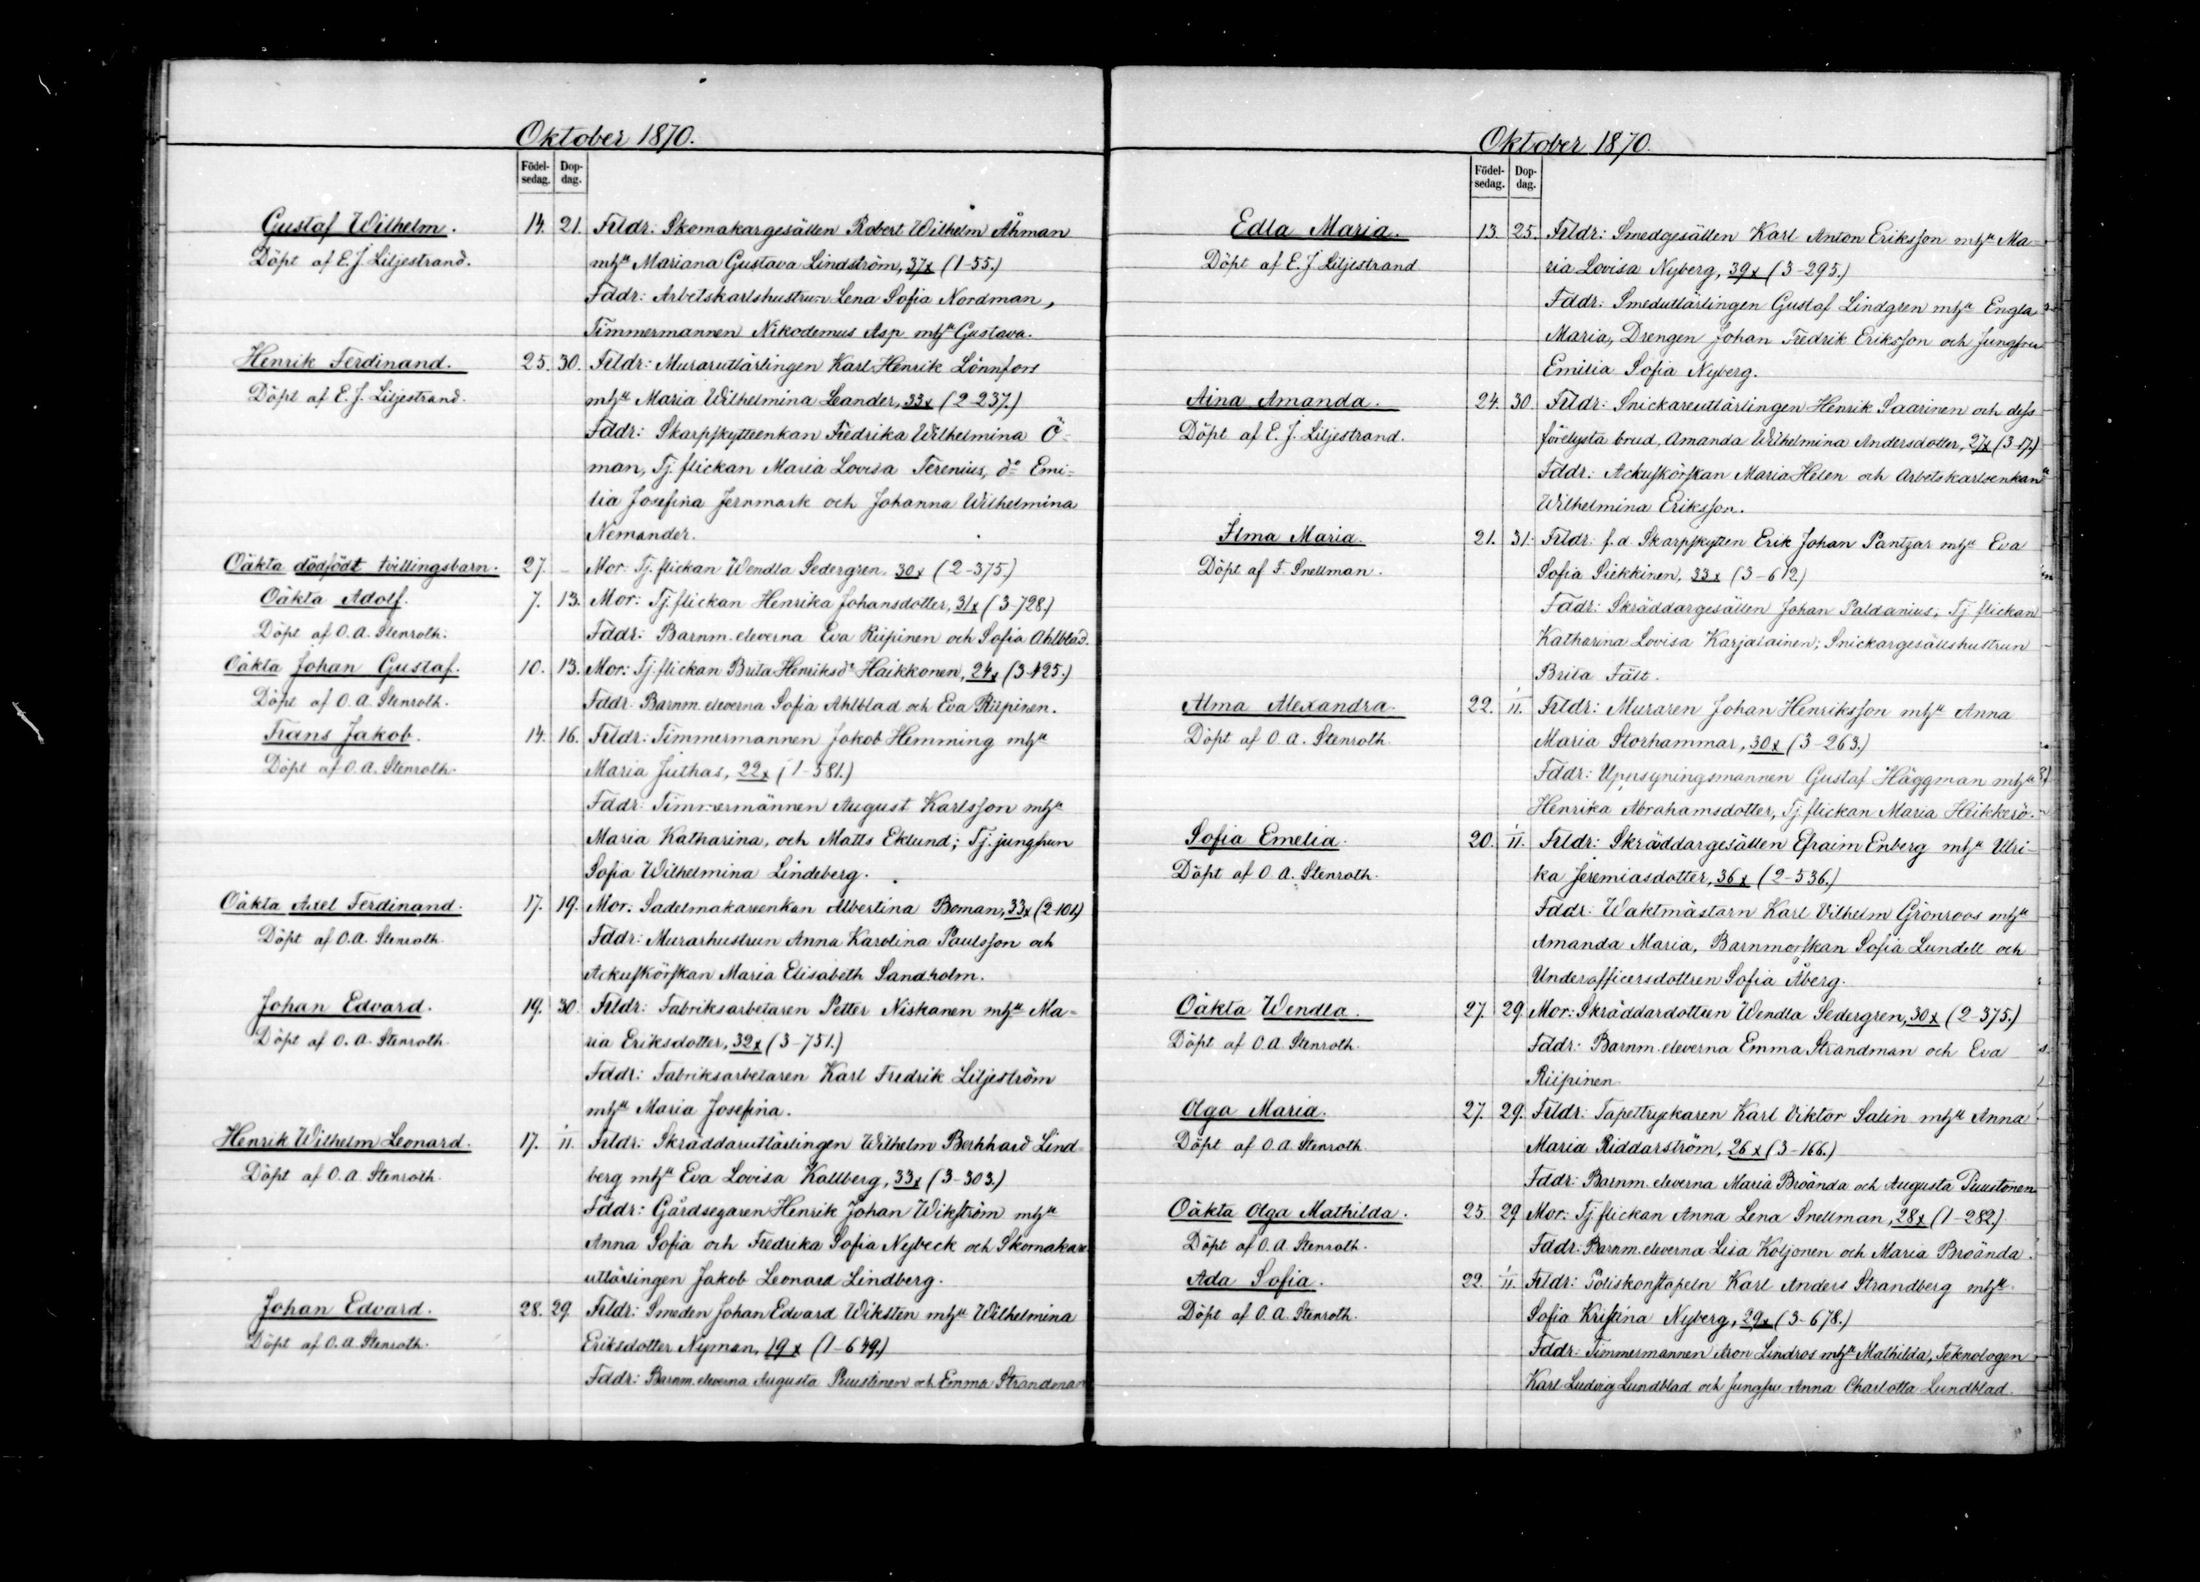 Oktober 1870.
Födel-sedag. Dop-dag.
Gustaf Wilhelm. 14. 21. Frldr: Skomakargesällen Robert Wilhelm Åhman
Döpt af E. J. Liljestrand. mhu Mariana Gustava Lindström, 37x (1-55.)
Fddr: Arbetskarlshustrun Lena Sofia Nordman,
Timmermannen Nikodemus Asp mhu Gustava.
Henrik Ferdinand. 25. 30. Frldr: Murarutlärlingen Karl Henrik Lönnfors
Döpt af E. J. Liljestrand. mhu Maria Wilhelmina Leander, 33x (2-237.)
Fddr: Skarpskytteenkan Fredrika Wilhelmina Ö-
man, Tj. flickan Maria Lovisa Terenius, do Emi-
lia Josefina Jernmark och Johanna Wilhelmina
Nemander.
Oäkta dödfödt tvillingsbarn. 27. - Mor: Tj. flickan Wendla Sedergren, 30x (2-375.)
Oäkta Adolf. 7. 13. Mor: Tj. flickan Henrika Johansdotter, 31x (3-728.)
Döpt af O. A. Stenroth. Fddr: Barnm. eleverna Eva Riipinen och Sofia Ahlblad.
Oäkta Johan Gustaf. 10. 13. Mor: Tj. flickan Brita Henriksdr Haikkonen, 24x (3-125.)
Döpt af O. A. Stenroth. Fddr: Barnm. eleverna Sofia Ahlblad och Eva Riipinen.
Frans Jakob. 14. 16. Frldr: Timmermannen Jakob Hemming mhu
Döpt af O. A. Stenroth. Maria Juthas, 22x (1-581.)
Fddr: Timmermännen August Karlsson mhu
Maria Katharina, och Matts Eklund; Tj. jungfrun
Sofia Wilhelmina Lindeberg.
Oäkta Axel Ferdinand. 17. 19. Mor: Sadelmakareenkan Albertina Boman, 33x (2-101.)
Döpt af O. A. Stenroth. Fddr: Murarhustrun Anna Karolina Paulsson och
Ackuskörskan Maria Elisabeth Sandholm.
Johan Edvard. 19. 30. Frldr: Fabriksarbetaren Petter Niskanen mhu Ma-
Döpt af O. A. Stenroth. ria Eriksdotter, 32x (3-751.)
Fddr: Fabriksarbetaren Karl Fredrik Liljeström
mhu Maria Josefina.
Henrik Wilhelm Leonard. 17. 1/11. Frldr: Skräddarutlärlingen Wilhelm Bernhard Lind-
Döpt af O. A. Stenroth. berg mhu Eva Lovisa Kallberg, 33x (3-303.)
Fddr: Gårdsegaren Henrik Johan Wikström mhu
Anna Sofia och Fredrika Sofia Nybeck och Skomakare
utlärlingen Jakob Leonard Lindberg.
Johan Edvard. 28. 29. Frldr: Smeden Johan Edvard Wiksten mhu Wilhelmina
Döpt af O. A. Stenroth. Eriksdotter Nyman, 19x (1-649.)
Fddr: Barnm. eleverna Augusta Puustinen och Emma Strandma
Oktober 1870.
Födel-sedag. Dop-dag.
Edla Maria. 13. 25. Frldr: Smedgesällen Karl Anton Eriksson mhu Ma-
Döpt af E. J. Liljestrand ria Lovisa Nyberg, 39x (3-295.)
Fddr: Smedutlärlingen Gustaf Lindgren mhu Engla
Maria, Drengen Johan Fredrik Eriksson och Jungfrun
Emilia Sofia Nyberg.
Aina Amanda. 24. 30. Frldr: Snickareutlärlingen Henrik Saarinen och dess
Döpt af E. J. Liljestrand. förelysta brud, Amanda Wilhelmina Andersdotter, 27x (3-17.)
Fddr: Ackuskörskan Maria Helen och Arbetskarlsenkan
Wilhelmina Eriksson.
Ilma Maria. 21. 31. Frldr: f. d. Skarpskytten Erik Johan Pantzar mhu Eva
Döpt af F. Snellman. Sofia Siekkinen, 33x (3-612)
Fddr: Skräddargesällen Johan Paldanius, Tj. flickan
Katharina Lovisa Karjalainen; Snickargesällshustrun
Brita Fält.
Alma Alexandra. 22. 1/11. Frldr: Muraren Johan Henriksson mhu Anna
Döpt af O. A. Stenroth. Maria Storhammar, 30x (3-263.)
Fddr: Uppsyningsmannen Gustaf Häggman mhu
Henrika Abrahamsdotter, Tj. flickan Maria Heikkerö.
Sofia Emelia. 20. 1/11. Frldr: Skräddargesällen Efraim Enberg mhu Ulri-
Döpt af O. A. Stenroth. ka Jeremiasdotter, 36x (2-536.)
Fddr: Waktmästarn Karl Vilhelm Grönroos mhu
Amanda Maria, Barnmorskan Sofia Lundell och
Underofficersdottren Sofia Åberg.
Oäkta Wendla. 27. 29. Mor: Skräddardottren Wendla Sedergren, 30x (2-375.)
Döpt af O. A. Stenroth. Fddr: Barnm. eleverna Emma Strandman och Eva
Riipinen.
Olga Maria. 27. 29. Frldr: Tapettryckaren Karl Viktor Salin mhu Anna
Döpt af O. A. Stenroth. Maria Riddarström, 26x (3-166.)
Fddr: Barnm. eleverna Maria Broända och Augusta Puustonen
Oäkta Olga Mathilda. 25. 29. Mor: Tj. flickan Anna Lena Snellman, 28x (1-282.)
Döpt af O. A. Stenroth. Fddr: Barnm. eleverna Lisa Koljonen och Maria Broända.
Ada Sofia. 22. 1/11. Frldr: Poliskonstapeln Karl Anders Strandberg mhu
Döpt af O. A. Stenroth. Sofia Kristina Nyberg, 29x (3-678.)
Fddr: Timmermannen Aron Lindros mhu Mathilda, Teknologen
Karl Ludvig Lundblad och Jungfru Anna Charlotta Lundblad.